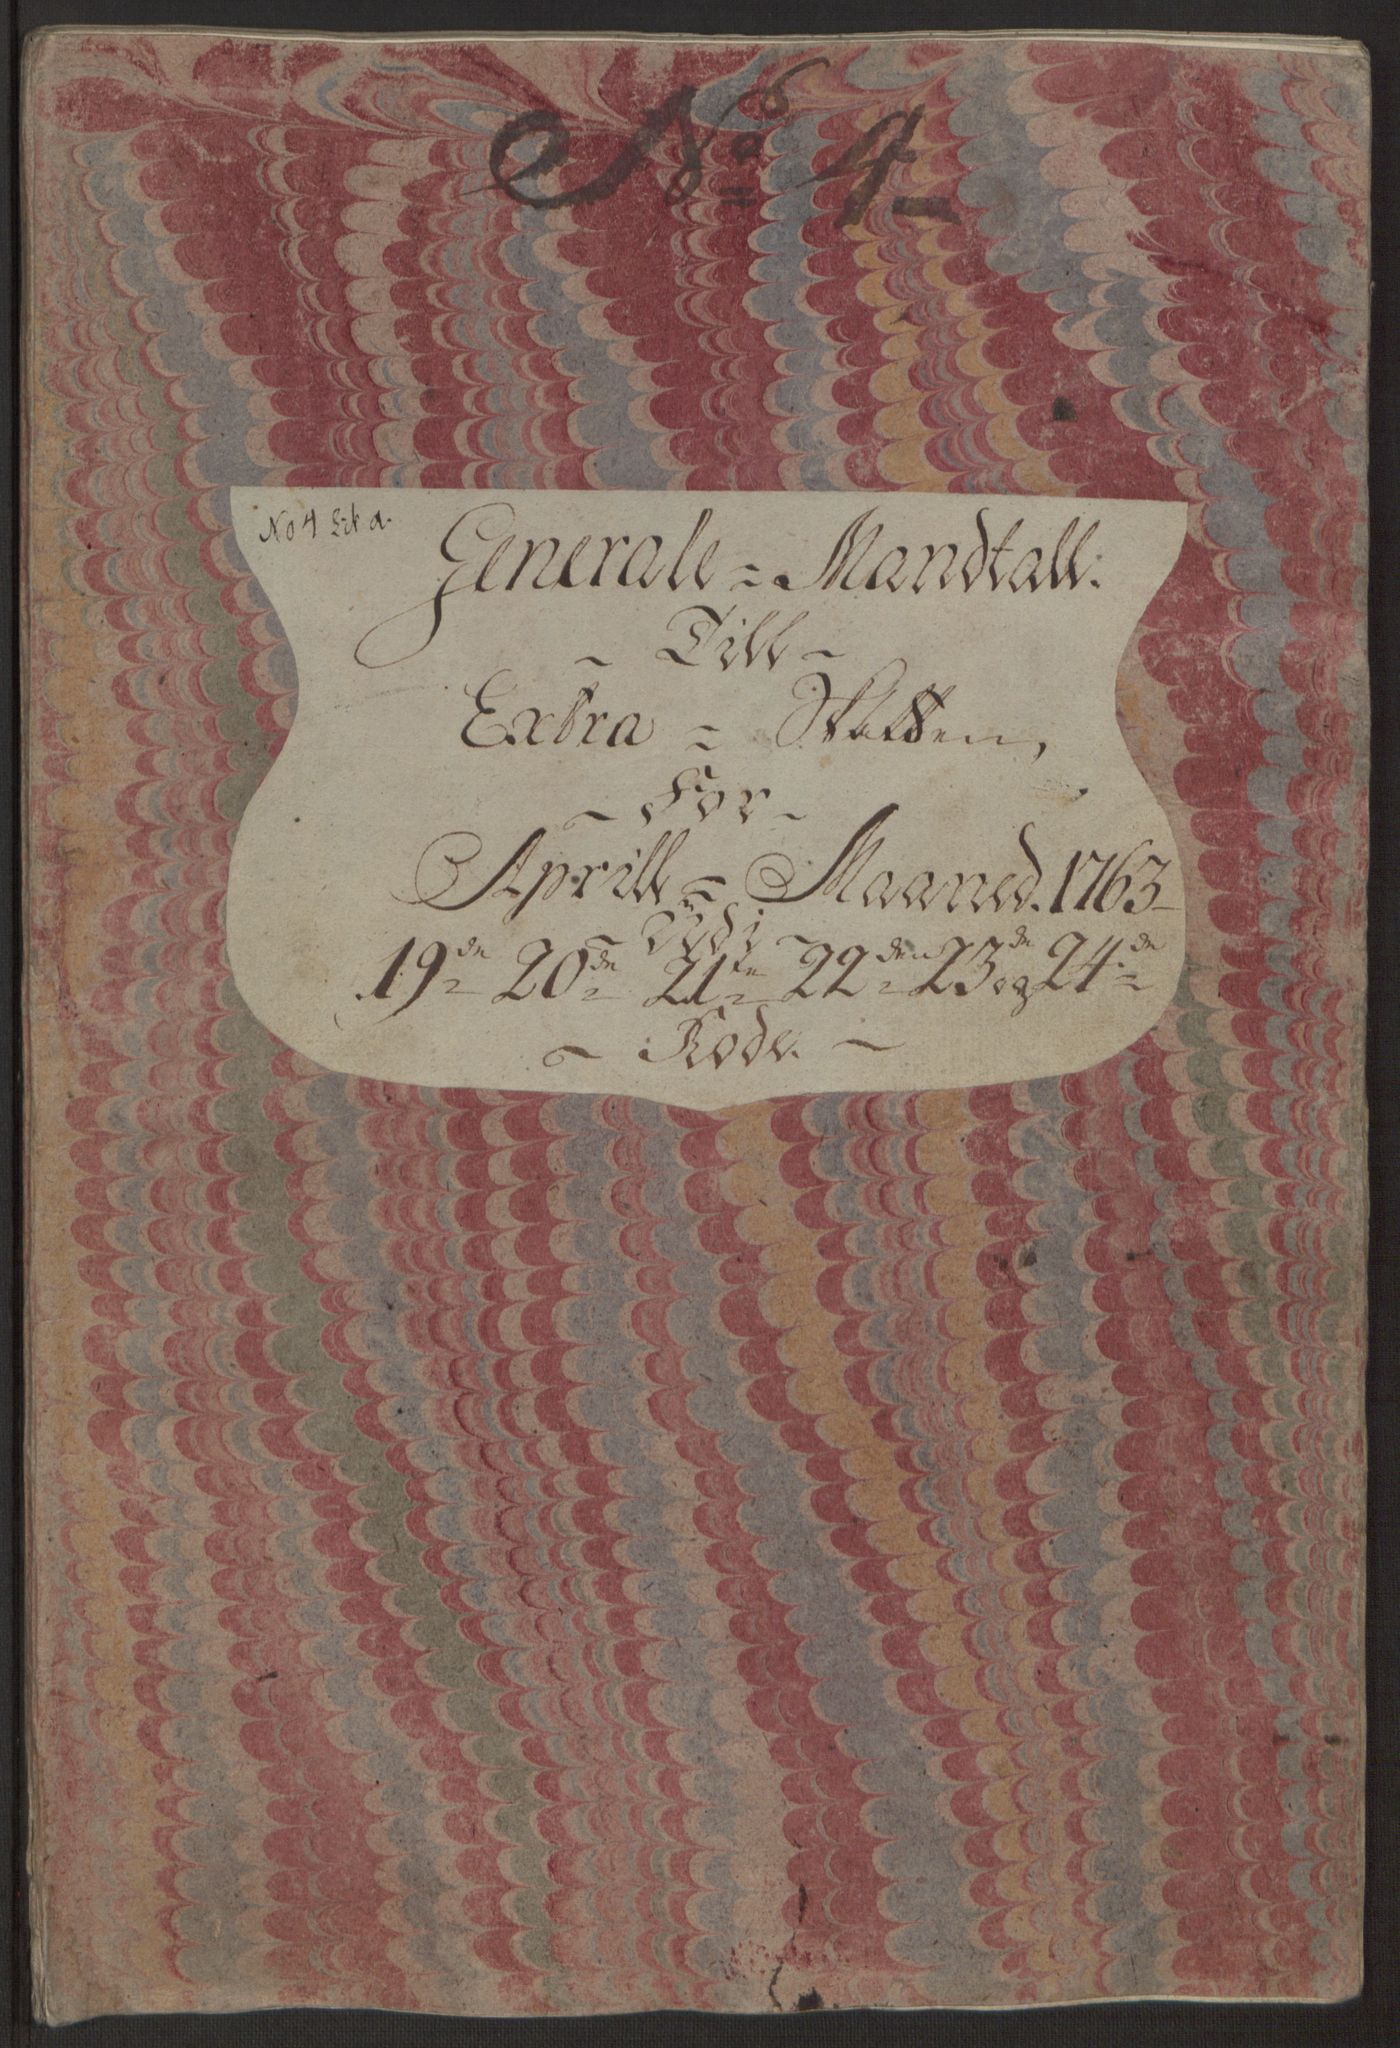 No 4
No 4 Lit a.
Generale = Mandtall.
~ Till ~
Extra = Skatten,
~ For ~
Aprill = Maaned. 1763
~ Udi ~
19de 20de 21te 22den 23de og 24de
~ Rode. ~